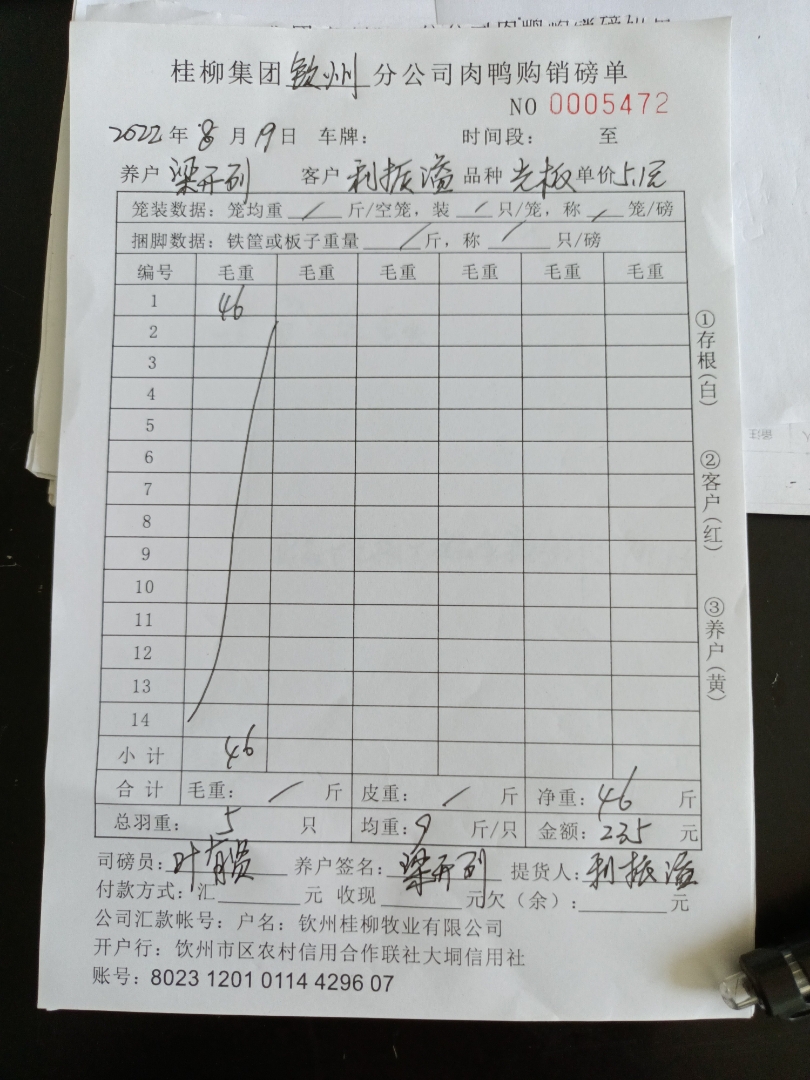 桂柳集团钦州分公司肉鸭购销磅单
NO 0005472
2022年8月19日 车牌: 时间段: 至
养户 梁开列 客户 利振溢 品种 光板 单价5.1元
笼装数据: 笼均重 / 斤/空笼, 装 / 只/笼, 称 / 笼/磅
捆脚数据: 铁筐或板子重量 / 斤, 称 / 只/磅
编号 毛重 毛重 毛重 毛重 毛重 毛重
1 46
2
3
4
5
6
7
8
9
10
11
12
13
14
小计 46
合计 毛重: / 斤 皮重: / 斤 净重: 46 斤
总羽重: 5 只 均重: 9 斤/只 金额: 235 元
司磅员: 叶 养户签名: 梁开列 提货人: 利振溢
付款方式: 汇 元 收现 元欠(余): 元
公司汇款帐号: 户名: 钦州桂柳牧业有限公司
开户行: 饮州市区农村信用合作联社大垌信用社
账号: 8023 1201 0114 4296 07
①存根(白)
②客户(红)
③养户(黄)
备注